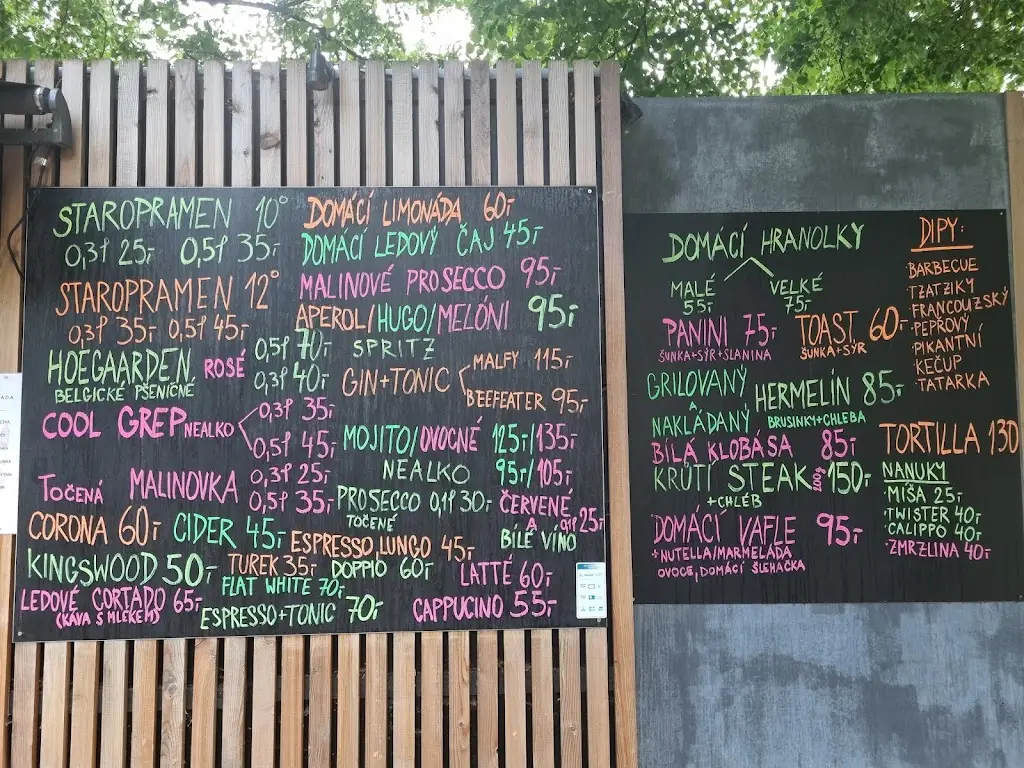 STAROPRAMEN 10°
0,3l 25,- 0,5l 35,-
STAROPRAMEN 12°
0,3l 35,- 0,5l 45,-
HOEGAARDEN ROSÉ 0,5l 70,-
BELGICKÉ PŠENIČNÉ 0,3l 40,-
COOL GREP NEALKO 0,3l 35,-
0,5l 45,-
TOČENÁ MALINOVKA 0,3l 25,-
0,5l 35,-
CORONA 60,- CIDER 45,-
KINGSWOOD 50,-
LEDOVÉ CORTADO 65,-
(KÁVA S MLÉKEM)
DOMÁCÍ LIMONÁDA 60,-
DOMÁCÍ LEDOVÝ ČAJ 45,-
MALINOVÉ PROSECCO 95,-
APEROL/HUGO/MELÓNI 95,-
SPRITZ
GIN+TONIC MALFY 115,-
BEEFEATER 95,-
MOJITO/OVOCNÉ 125,-/135,-
NEALKO 95,-/105,-
PROSECCO 0,1l 30,-
TOČENÉ
ČERVENÉ
A 0,1l 25,-
BÍLÉ VÍNO
ESPRESSO, LUNGO 45,-
TUREK 35,- DOPPIO 60,- LATTÉ 60,-
FLAT WHITE 70,-
ESPRESSO+TONIC 70,- CAPPUCINO 55,-
DOMÁCÍ HRANOLKY
MALÉ VELKÉ
55,- 75,-
PANINI 75,- TOAST 60,-
ŠUNKA+SÝR+SLANINA ŠUNKA+SÝR
GRILOVANÝ
A
NAKLÁDANÝ
HERMELÍN 85,-
BRUSINKY+CHLEBA
BÍLÁ KLOBÁSA 85,-
KRŮTÍ STEAK 200g 150,-
+CHLÉB
DOMÁCÍ VAFLE 95,-
+NUTELLA/MARMELÁDA
OVOCE, DOMÁCÍ ŠLEHAČKA
DIPY:
·BARBECUE
·TZATZIKY
·FRANCOUZSKÝ
·PEPŘOVÝ
·PIKANTNÍ
·KEČUP
·TATARKA
TORTILLA 130
NANUKY
·MÍŠA 25,-
·TWISTER 40,-
·CALIPPO 40,-
·ZMRZLINA 40,-